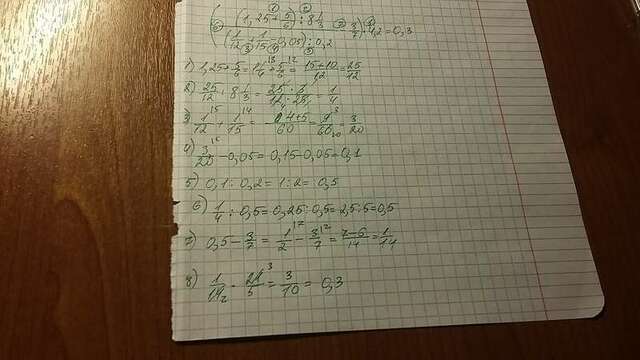 (1,25+5/6):8 1/3
(1/12+1/15-0,05):0,2 - 3/7)·4,2=0,3
1) 1,25+5/6=1 1/4+5/6=15+10/12=25/12
2) 25/12:8 1/3=25·3/12·25=1/4
3) 1/12+1/15=4+5/60=9/60=3/20
4) 3/20-0,05=0,15-0,05=0,1
5) 0,1:0,2=1:2=0,5
6) 1/4:0,5=0,25:0,5=2,5:5=0,5
7) 0,5-3/7=1/2-3/7=7-6/14=1/14
8) 1/14·21/5=3/10=0,3